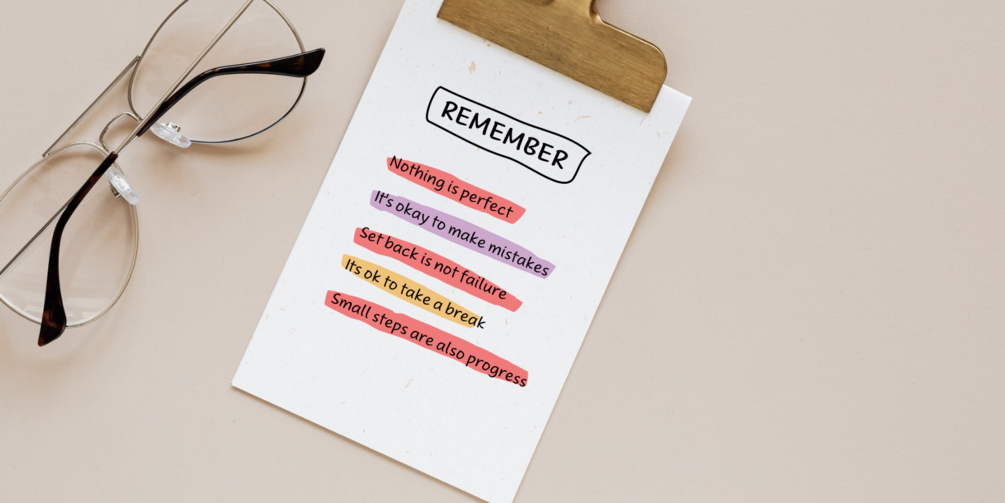 REMEMBER
Nothing is perfect
It's okay to make mistakes
Set back is not failure
Its ok to take a break
Small steps are also progress